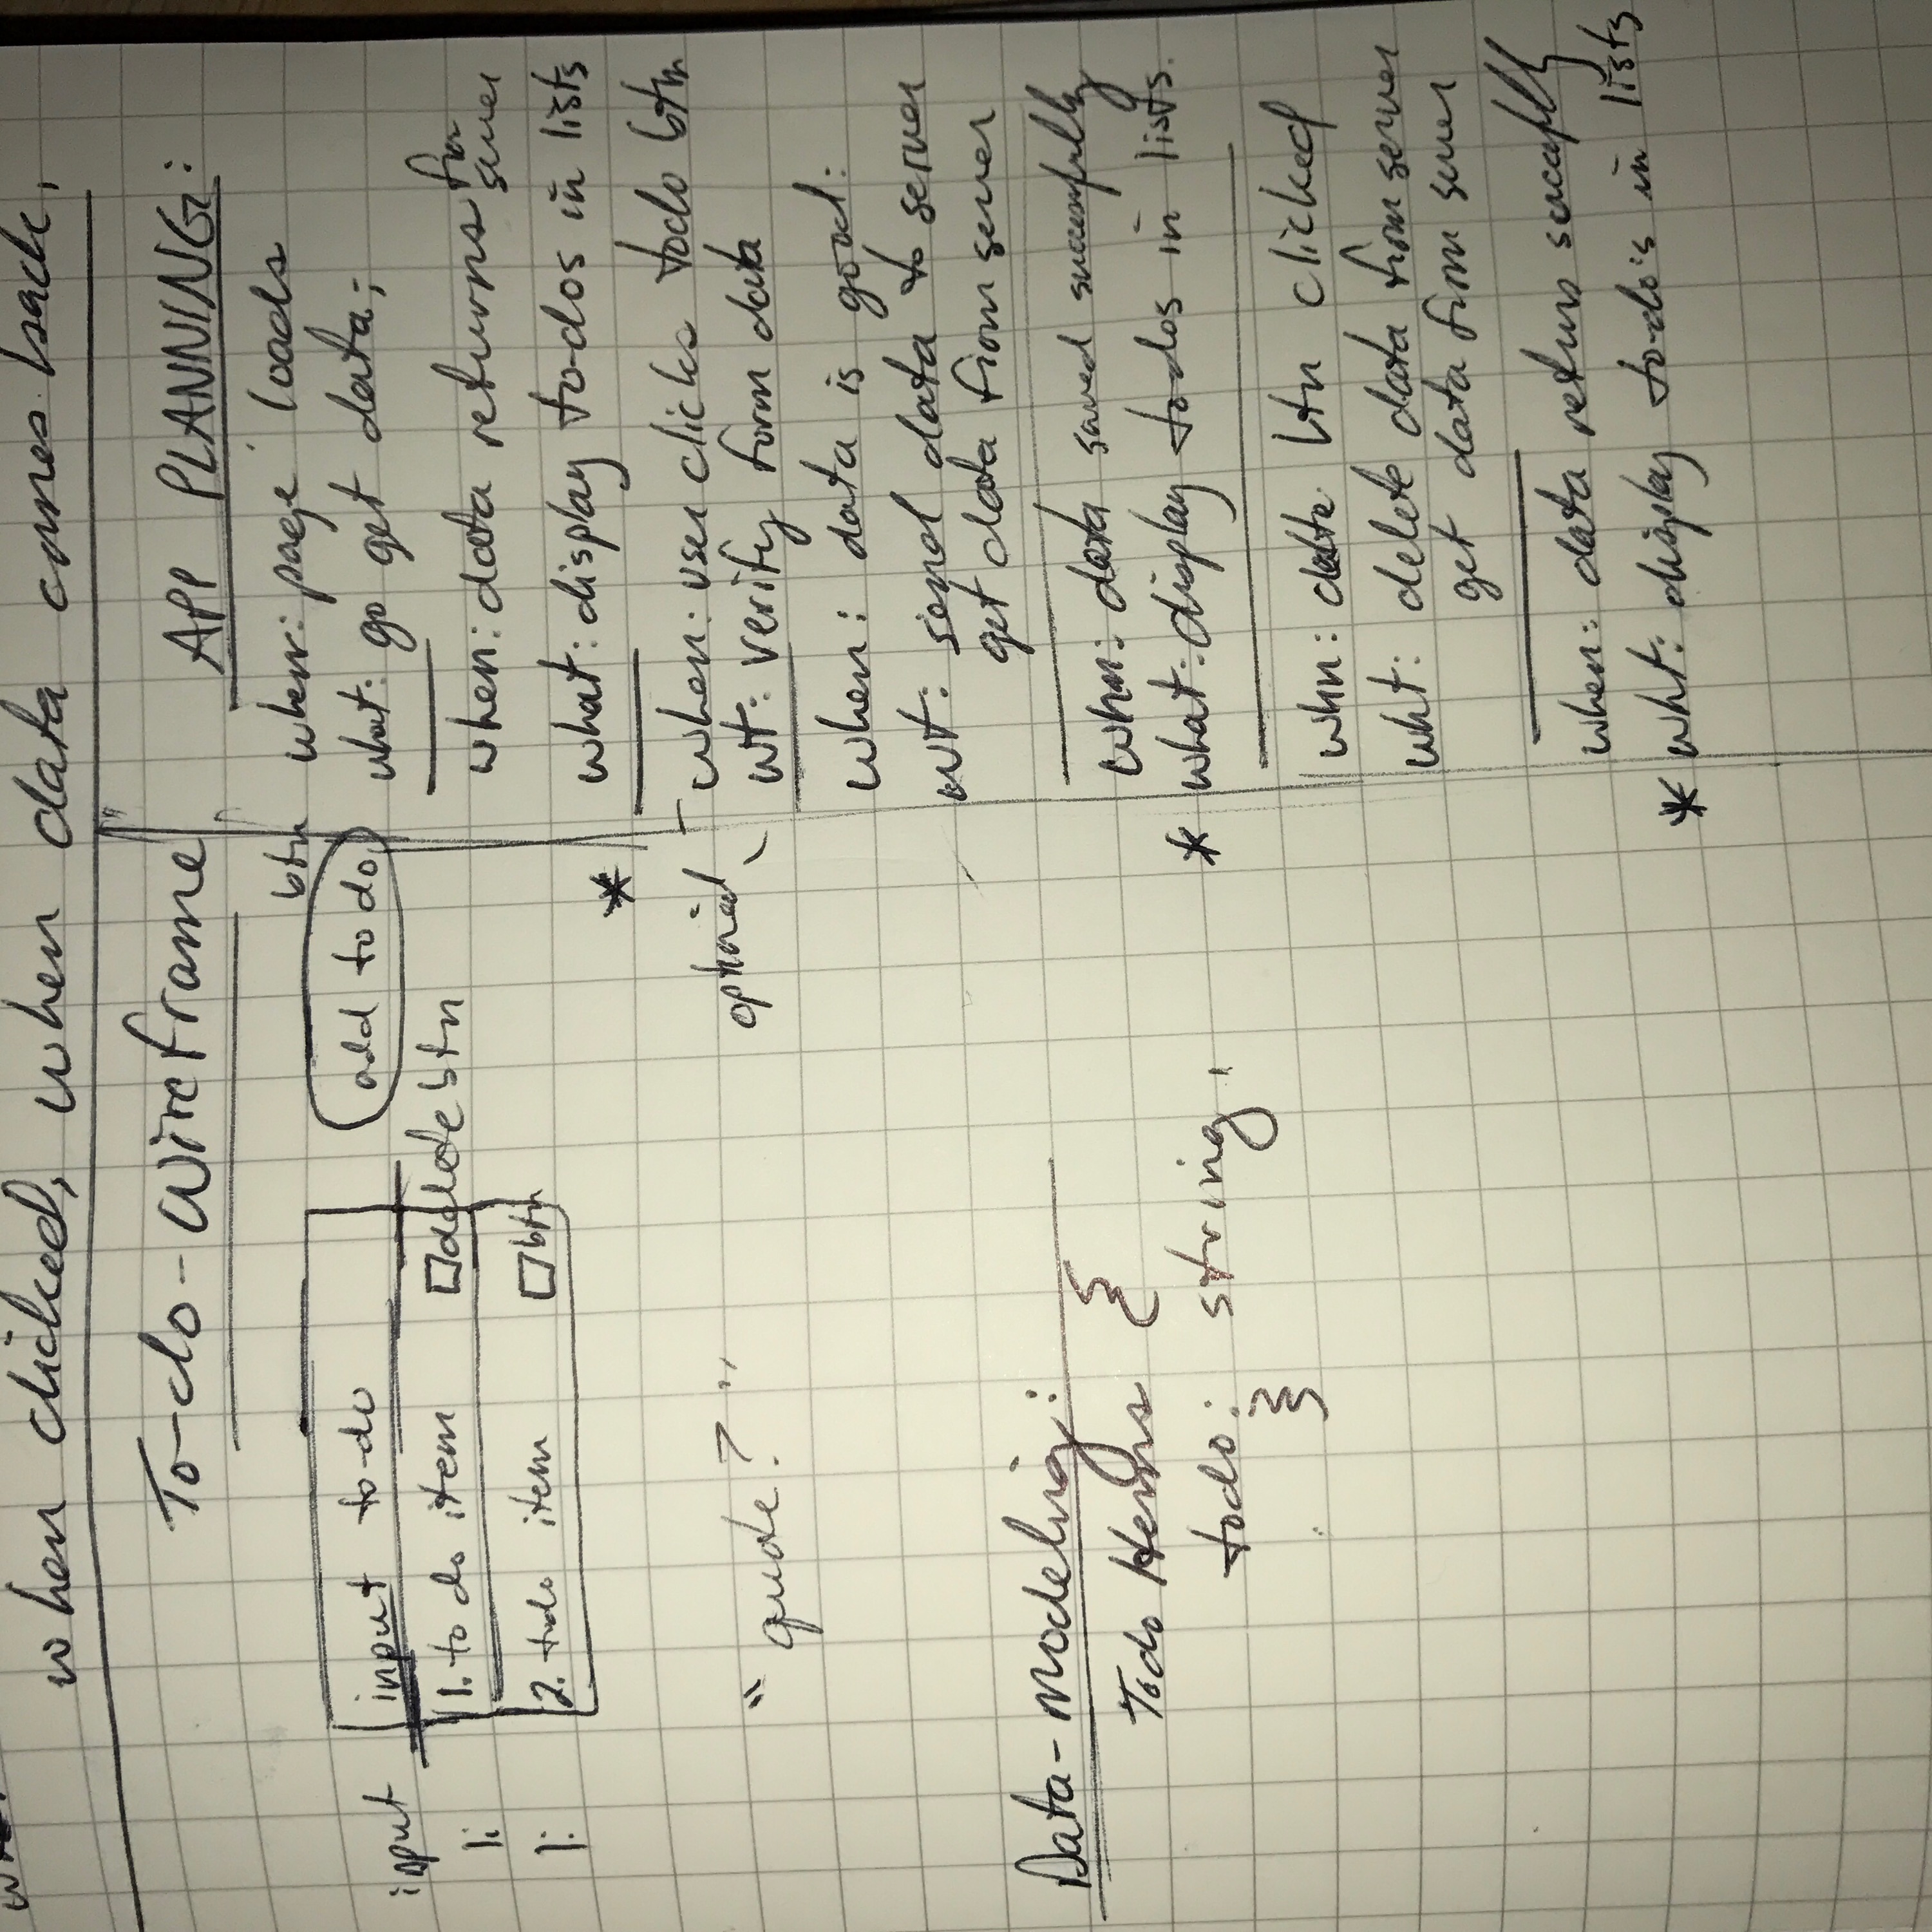 when clicked, when data comes back,
To-do-Wireframe
btn
input
input to-do
add to do
li
1. to do item
delete btn
li
2. todo item
btn
"quote?"
Data-Modeling:
Todo Items {
todo: string,
}
APP PLANNING:
when: page loads
what: go get data;
when: data returns from server
* what: display to-dos in lists
optional
when: user clicks todo btn
wt: verify form data
when: data is good:
wt: send data to server
get data from server
when: data saved successfully
* what: display to-dos in lists.
whn: delete btn clicked
wht: delete data from server
get data from server
when: data returns succefully
* wht: display to-do's in lists